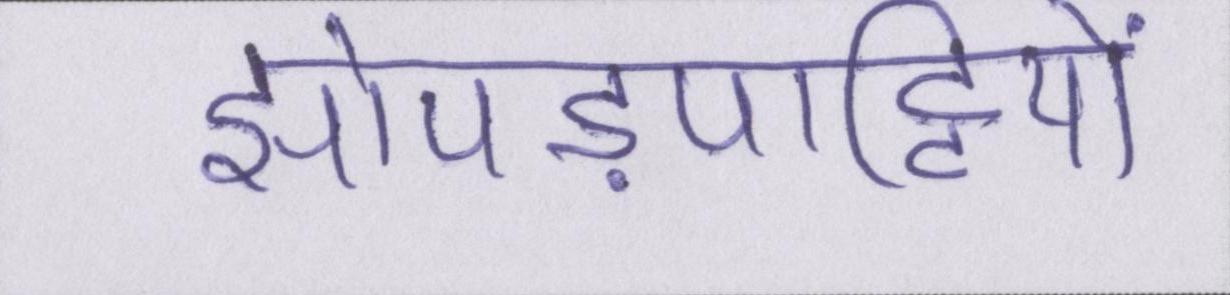 झोपड़पाट्टियों